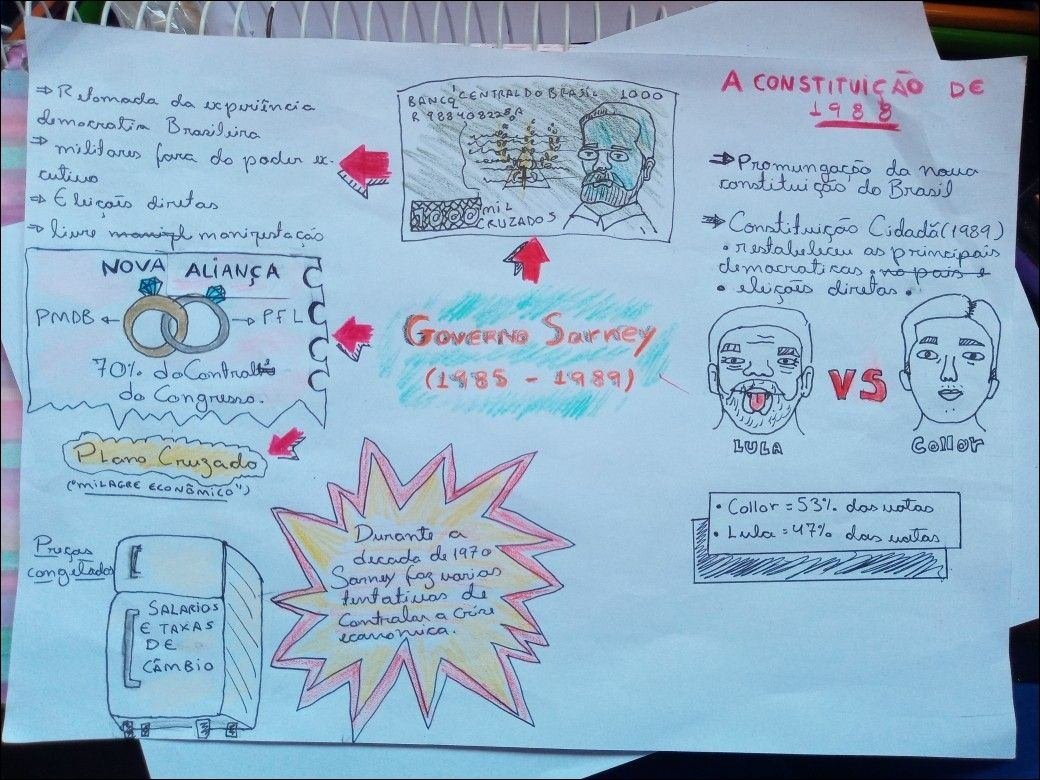 ⇒ Retomada da experiência
democratia Brasileira
⇒ militares fora do poder ex-
cutivo
⇒ Eleições diretas
⇒ livre manifestação
BANCO CENTRAL DO BRASIL 1000
1000 MIL
CRUZADOS
NOVA ALIANÇA
PMDB PFL
70% do Control
do Congresso.
Plano Cruzado
("MILAGRE ECONÔMICO")
Preças
congelados
SALARIOS
E TAXAS
DE
CÂMBIO
GOVERNO Sarney
(1985 - 1989)
Durante a
decada de 1970
Sarney faz varias
tentativas de
Contralar a Crise
econômica.
A CONSTITUIÇÃO DE
1988
⇒ Promungação da nova
constituição do Brasil
⇒ Constituição Cidadã (1989)
• restabeleceu as principais
democraticas. no país e
• eleições diretas.
VS
LULA Collor
• Collor = 53% dos votos
• Lula = 47% dos votos